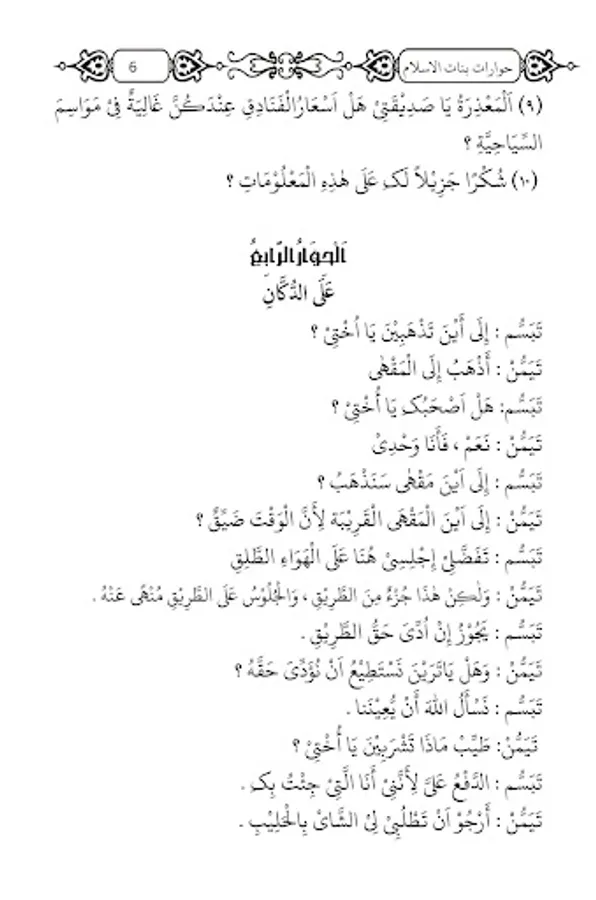 حوارات بنات الاسلام
6
(٩) اَلْمَعْذِرَةُ يَا صَدِيْقَتِىْ هَلْ اَسْعَارُالْفَنَادِقِ عِنْدَكُنَّ غَالِيَةٌ فِىْ مَوَاسِمَ
السِّيَاحِيَّةِ ؟
(١٠) شُكْرًا جَزِيْلاً لَکِ عَلَى هٰذِهِ الْمَعْلُوْمَاتِ ؟
اَلْحِوَارُالرَّابِعُ
عَلَى الدُّكَّانِ
تَبَسُّم : إِلَى أَيْنَ تَذْهَبِيْنَ يَا اُخْتِىْ ؟
تَيَمُّنْ : أَذْهَبُ إِلَى الْمَقْهٰى
تَبَسُّم: هَلْ اَصْحَبُکِ يَا أُخْتِىْ ؟
تَيَمُّنْ : نَعَمْ ، فَأَنَا وَحْدِىْ
تَبَسُّم : إِلَى اَيْنَ مَقْهٰى سَنَذْهَبُ ؟
تَيَمُّنْ : إِلَى اَيْنَ الْمَقْهَى الْقَرِيْبَة لِأَنَّ الْوَقْتَ ضَيِّقٌ ؟
تَبَسُّم : تَفَضَّلِىْ إِجْلِسِىْ هُنَا عَلَى الْهَوَاءِ الطَّلِقِ
تَيَمُّنْ : وَلٰكِنْ هٰذَا جُزْءٌ مِنَ الطَّرِيْقِ ، وَالْجُلُوْسُ عَلَى الطَّرِيْقِ مَنْهٰى عَنْهُ .
تَبَسُّم : يَجُوْزُ إِنْ اُدِّىَ حَقُّ الطَّرِيْقِ .
تَيَمُّنْ : وَهَلْ يَاتَرَيْنَ نَسْتَطِيْعُ اَنْ نُؤَدِّىَ حَقَّهُ ؟
تَبَسُّم : نَسْأَلُ اللهَ أَنْ يُّعِيْنَنا .
تَيَمُّنْ: طَيِّبْ مَاذَا تَشْرَبِيْنَ يَا أُخْتِىْ ؟
تَبَسُّم : الدَّفْعُ عَلَىَّ لِأَنَّنِىْ أَنَا الَّتِىْ جِئْتُ بِکِ .
تَيَمُّنْ : أَرْجُوْ اَنْ تَطْلُبِىْ لِىْ الشَّاىَ بِالْحَلِيْبِ .